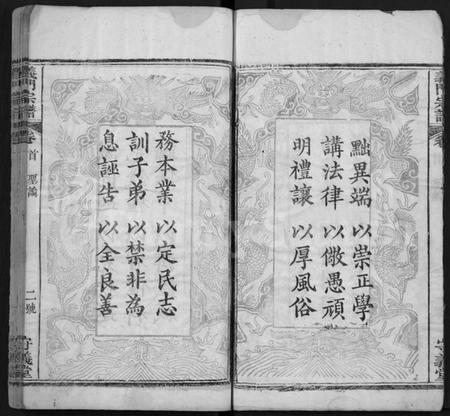 黜異端以崇正學
講法律以儆愚頑
明禮讓以厚風俗
務本業以定民志
訓子弟以禁非為
息誣告以全良善
義門宗譜
卷首
聖諭
二號
守義堂